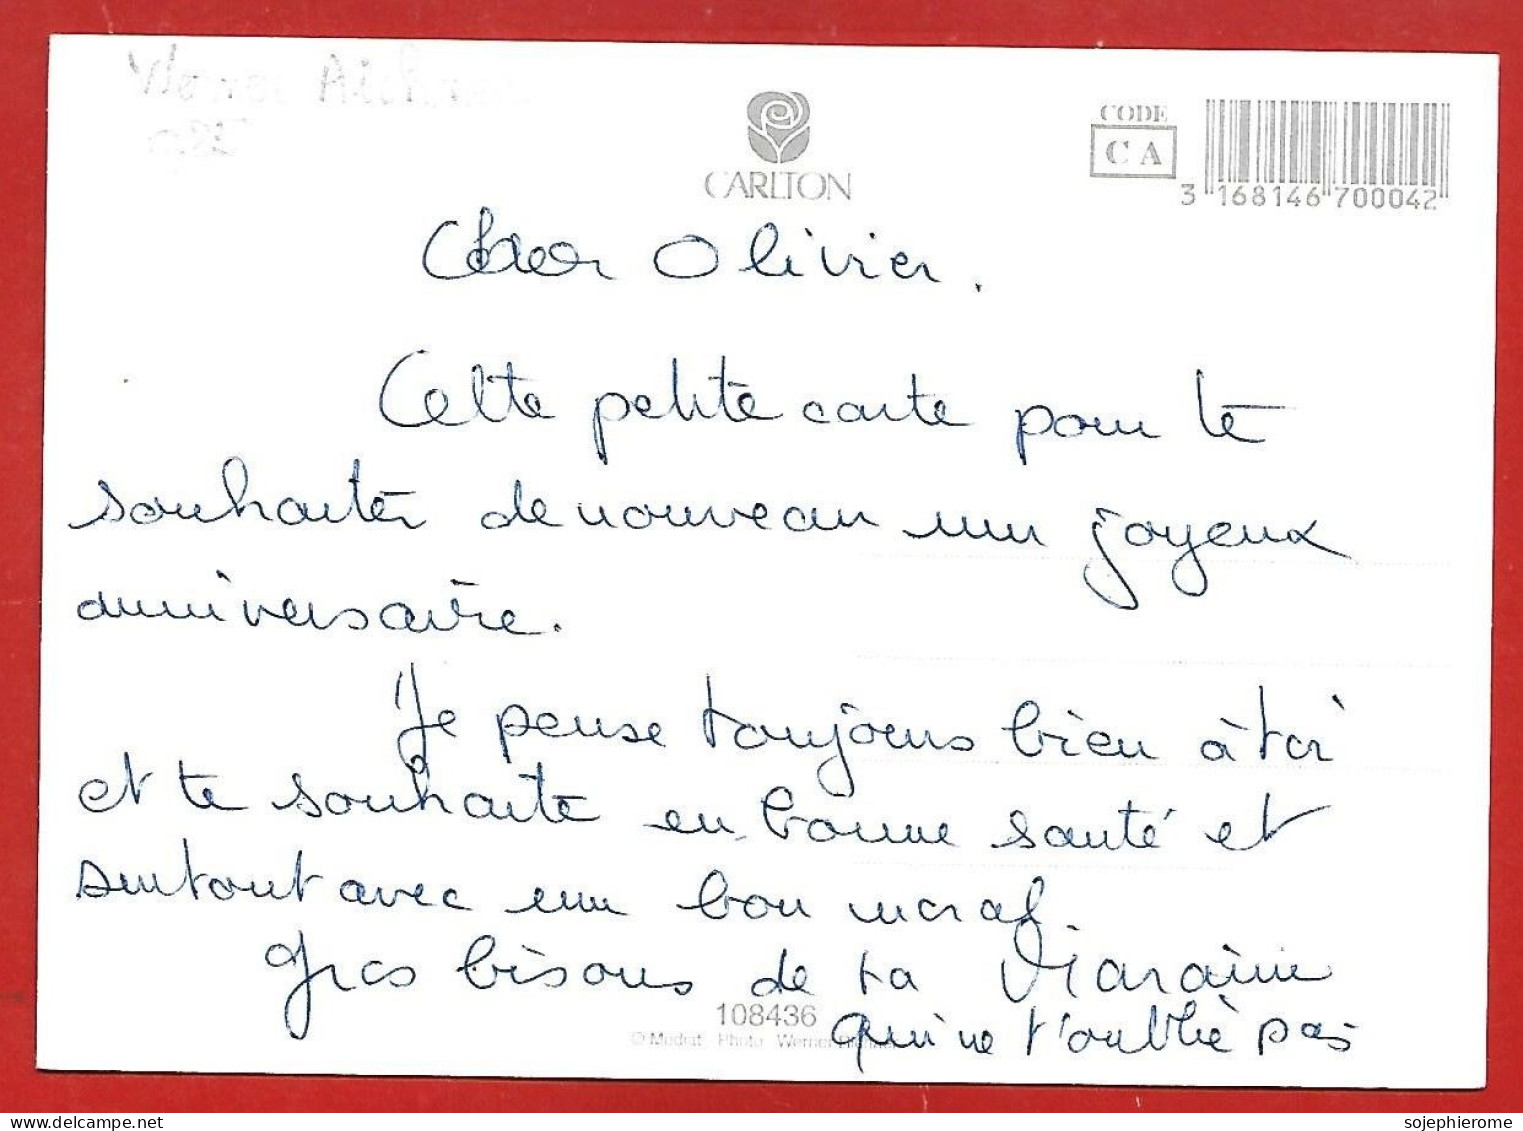 CARLTON
CODE
CA
3 168146 700042
Cher Olivier.
Cette petite carte pour te
souhaiter de nouveau un joyeux
anniversaire.
Je pense toujours bien à toi
et te souhaite en bonne santé et
surtout avec un bon moral.
Gros bisous de ta Maraine
qui ne t'oublie pas
108436
© Medrat Photo Werner
sojephierome
www.delcampe.net